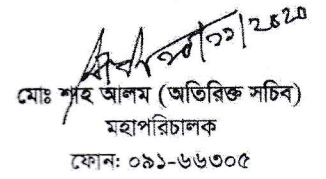 ২০/১১/২০২০
মোঃ শাহ আলম (অতিরিক্ত সচিব)
মহাপরিচালক
ফোন: ০৯১-৬৬৩০৫